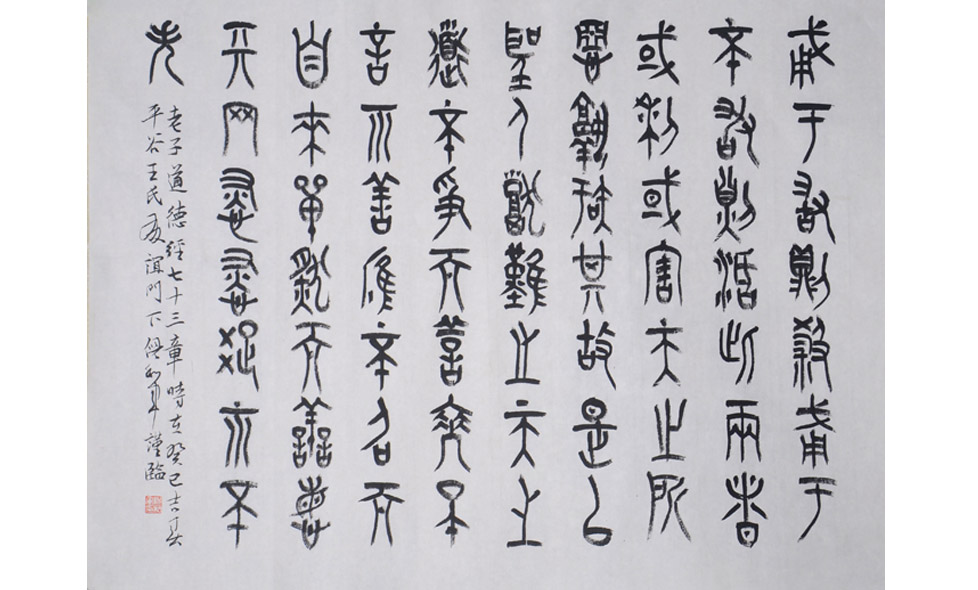 勇于敢則殺勇于
不敢則活此兩者
或利或害天之所
惡孰知其故是以
聖人猶難之天之
道不爭而善勝不
言而善應不召而
自來單然而善謀
天网恢恢疏而不
失
老子道德經七十三章時在癸巳吉春
平谷王氏友誼門下謹臨